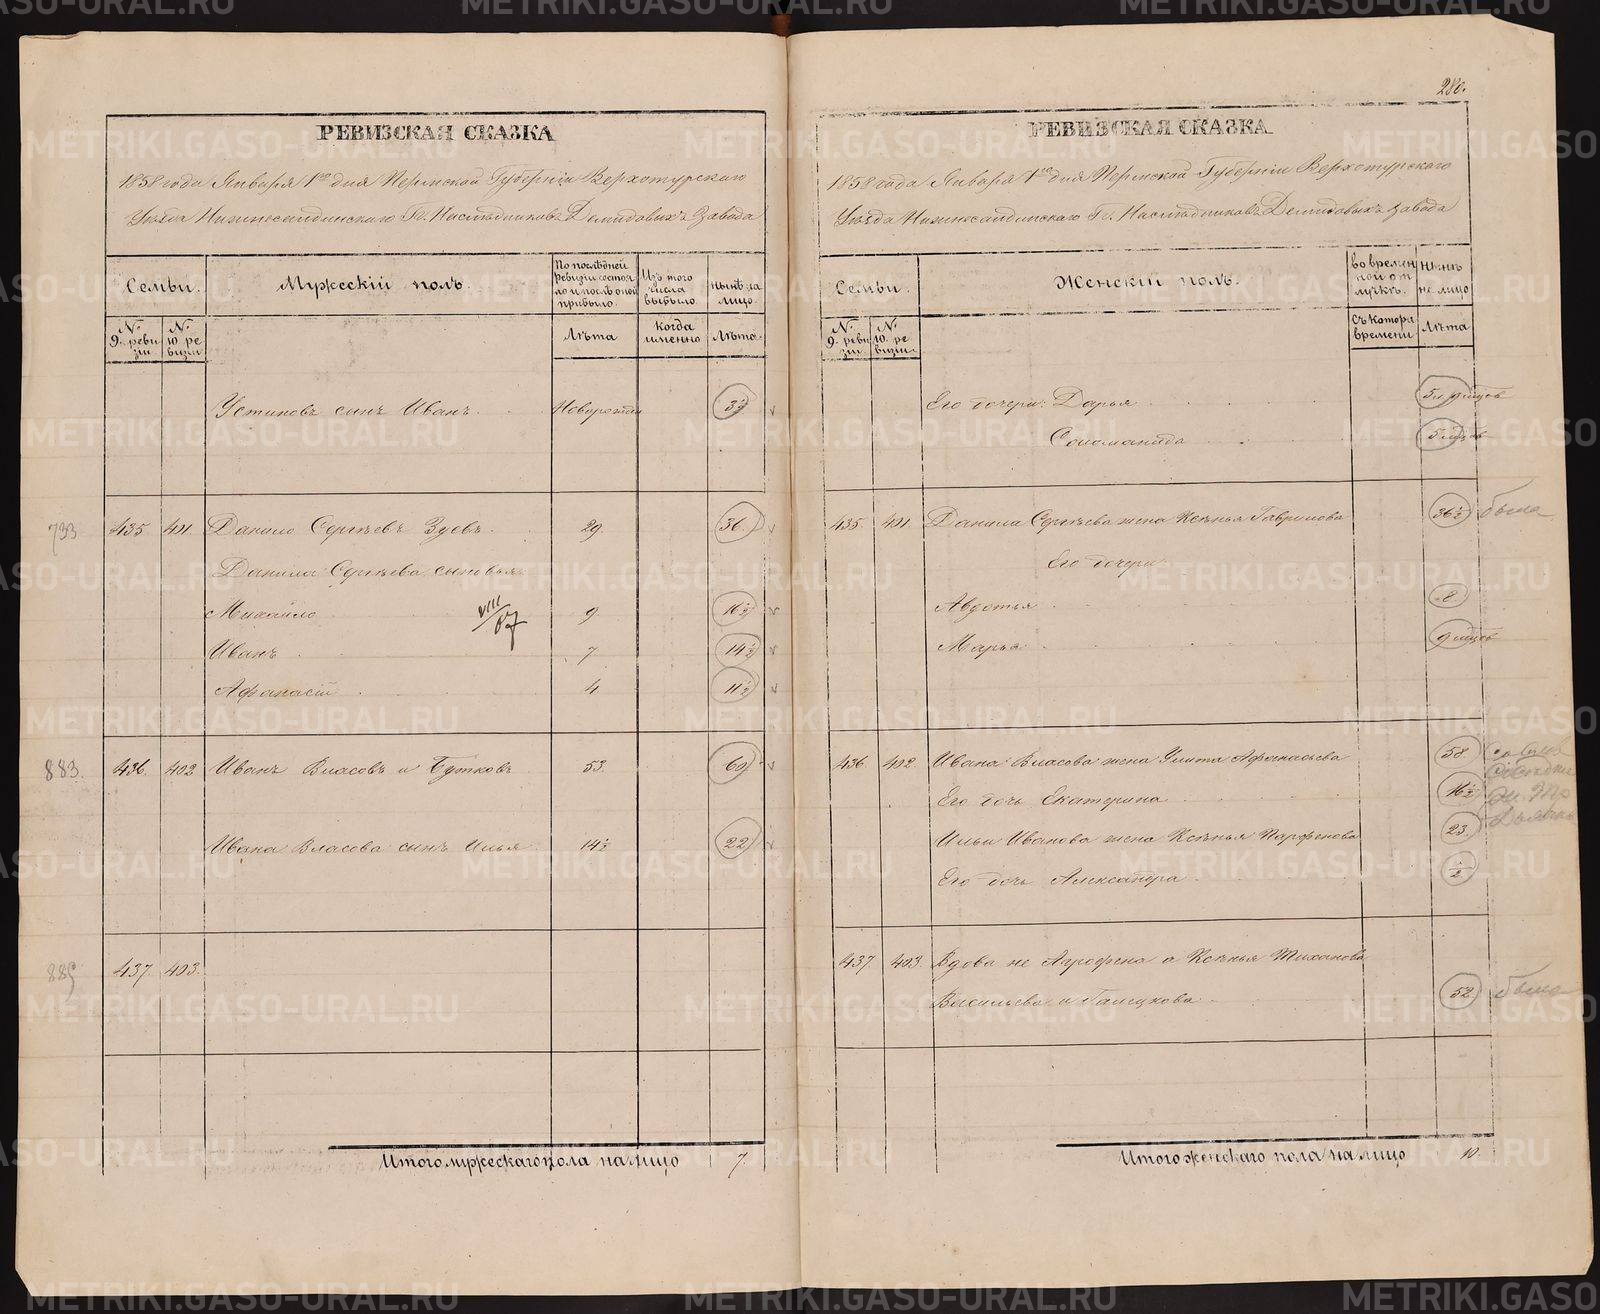 280.
РЕВИЗСКАЯ СКАЗКА
1858 года Января 1го дня Пермской Губерніи Верхотурскаго
Уѣзда Нижнесалдинскаго Гг. Наслѣдниковъ Демидовыхъ Завода
Семьи.
Мужескій полъ.
По послѣдней ревизіи состояло и послѣ оной прибыло.
Изъ того числа выбыло
Нынѣ на лицо
№ 9. ревизіи
№ 10 ревизіи
Лѣта
Когда именно
Лѣта
Устиновъ сынъ Иванъ
Новорожден
3½
793
435 401 Данило Сергѣевъ Зуевъ 29 36
Данила Сергѣева сыновья
Михайло VIII/87 9 16½
Иванъ 7 14½
Афанасій 4 11½
883.
436. 402 Иванъ Власовъ и Бутковъ 53. 60
Ивана Власова сынъ Илья 14½ 22
885
437. 403.
Итого мужескаго пола на лицо 7.
РЕВИЗСКАЯ СКАЗКА
1858 года Января 1го дня Пермской Губерніи Верхотурскаго
Уѣзда Нижнесалдинскаго Гг. Наслѣдниковъ Демидовыхъ Завода
Семьи.
Женскій полъ.
Во временной отлучкѣ.
Нынѣ на лицо
№ 9. ревизіи
№ 10. ревизіи
Съ котораго времени
Лѣта
Его дочери: Дарья
Соломанида
435. 401 Данила Сергѣева жена Ксѣнья Гаврилова 36½ была
Его дочери
Авдотья 8
Марья 9 мѣсцовъ
436 402. Ивана Власова жена Улита Афанасьева 58.
Его дочь Екатерина 16½
Ильи Иванова жена Ксѣнья Парфенова 23.
Его дочь Александра ½
437. 403. Вдова не Агрофена а Ксѣнья Тиханова
Васильева и Галецкова 52 была
Итого женскаго пола на лицо 10.
METRIKI.GASO-URAL.RU